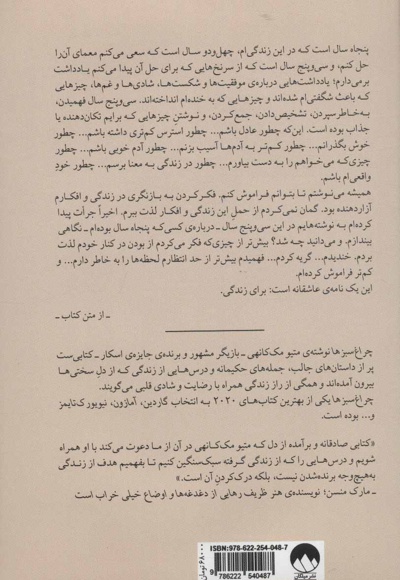 پنجاه سال است که در این زندگی‌ام، چهل‌ودو سال است که سعی می‌کنم معمای آن را
حل کنم، و سی‌وپنج سال است که از سرنخ‌هایی که برای حل آن پیدا می‌کنم یادداشت
برمی‌دارم؛ یادداشت‌هایی درباره‌ی موفقیت‌ها و شکست‌ها، شادی‌ها و غم‌ها، چیزهایی
که باعث شگفتی‌ام شده‌اند و چیزهایی که به خنده‌ام انداخته‌اند. سی‌وپنج سال فهمیدن،
به‌خاطرسپردن، تشخیص‌دادن، جمع‌کردن، و نوشتن چیزهایی که برایم تکان‌دهنده یا
جذاب بوده است. این‌که چطور عادل باشم... چطور استرس کم‌تری داشته باشم... چطور
خوش بگذرانم... چطور کم‌تر به آدم‌ها آسیب بزنم... چطور آدم خوبی باشم... چطور
چیزی‌که می‌خواهم را به دست بیاورم... چطور در زندگی به معنا برسم... چطور خودِ
واقعی‌ام باشم.
همیشه می‌نوشتم تا بتوانم فراموش کنم. فکرکردن به بازنگری در زندگی و افکارم
آزاردهنده بود. گمان نمی‌کردم از حملِ این زندگی و افکار لذت ببرم. اخیراً جرأت پیدا
کرده‌ام به نوشته‌هایم در این سی‌وپنج سال ـ درباره‌ی کسی‌که پنجاه سال بوده‌ام ـ نگاهی
بیندازم. و می‌دانید چه شد؟ بیش‌تر از چیزی‌که فکر می‌کردم از بودن در کنار خودم لذت
بردم. خندیدم... گریه کردم... فهمیدم بیش‌تر از حد انتظارم لحظه‌ها را به خاطر دارم... و
کم‌تر فراموش کرده‌ام.
این یک نامه‌ی عاشقانه است: برای زندگی.
ـ از متن کتاب ـ
چراغ‌سبزها نوشته‌ی متیو مک‌کانهی ـ بازیگر مشهور و برنده‌ی جایزه‌ی اسکار ـ کتابی‌ست
پر از داستان‌های جالب، جمله‌های حکیمانه و درس‌هایی از زندگی که از دلِ سختی‌ها
بیرون آمده‌اند و همگی از رازِ زندگی همراه با رضایت و شادی قلبی می‌گویند.
چراغ‌سبزها یکی از بهترین کتاب‌های ۲۰۲۰ به انتخاب گاردین، آمازون، نیویورک‌تایمز
و... بوده است.
«کتابی صادقانه و برآمده از دل که متیو مک‌کانهی در آن از ما دعوت می‌کند با او همراه
شویم و درس‌هایی را که از زندگی گرفته سبک‌سنگین کنیم تا بفهمیم هدف از زندگی
به‌هیچ‌وجه برنده‌شدن نیست، بلکه درک‌کردنِ آن است.»
ـ مارک منسن؛ نویسنده‌ی هنر ظریف رهایی از دغدغه‌ها و اوضاع خیلی خراب است
ISBN:978-622-254-048-7
9 786222 540487
۶۸۰۰۰ تومان
نشر میلکان